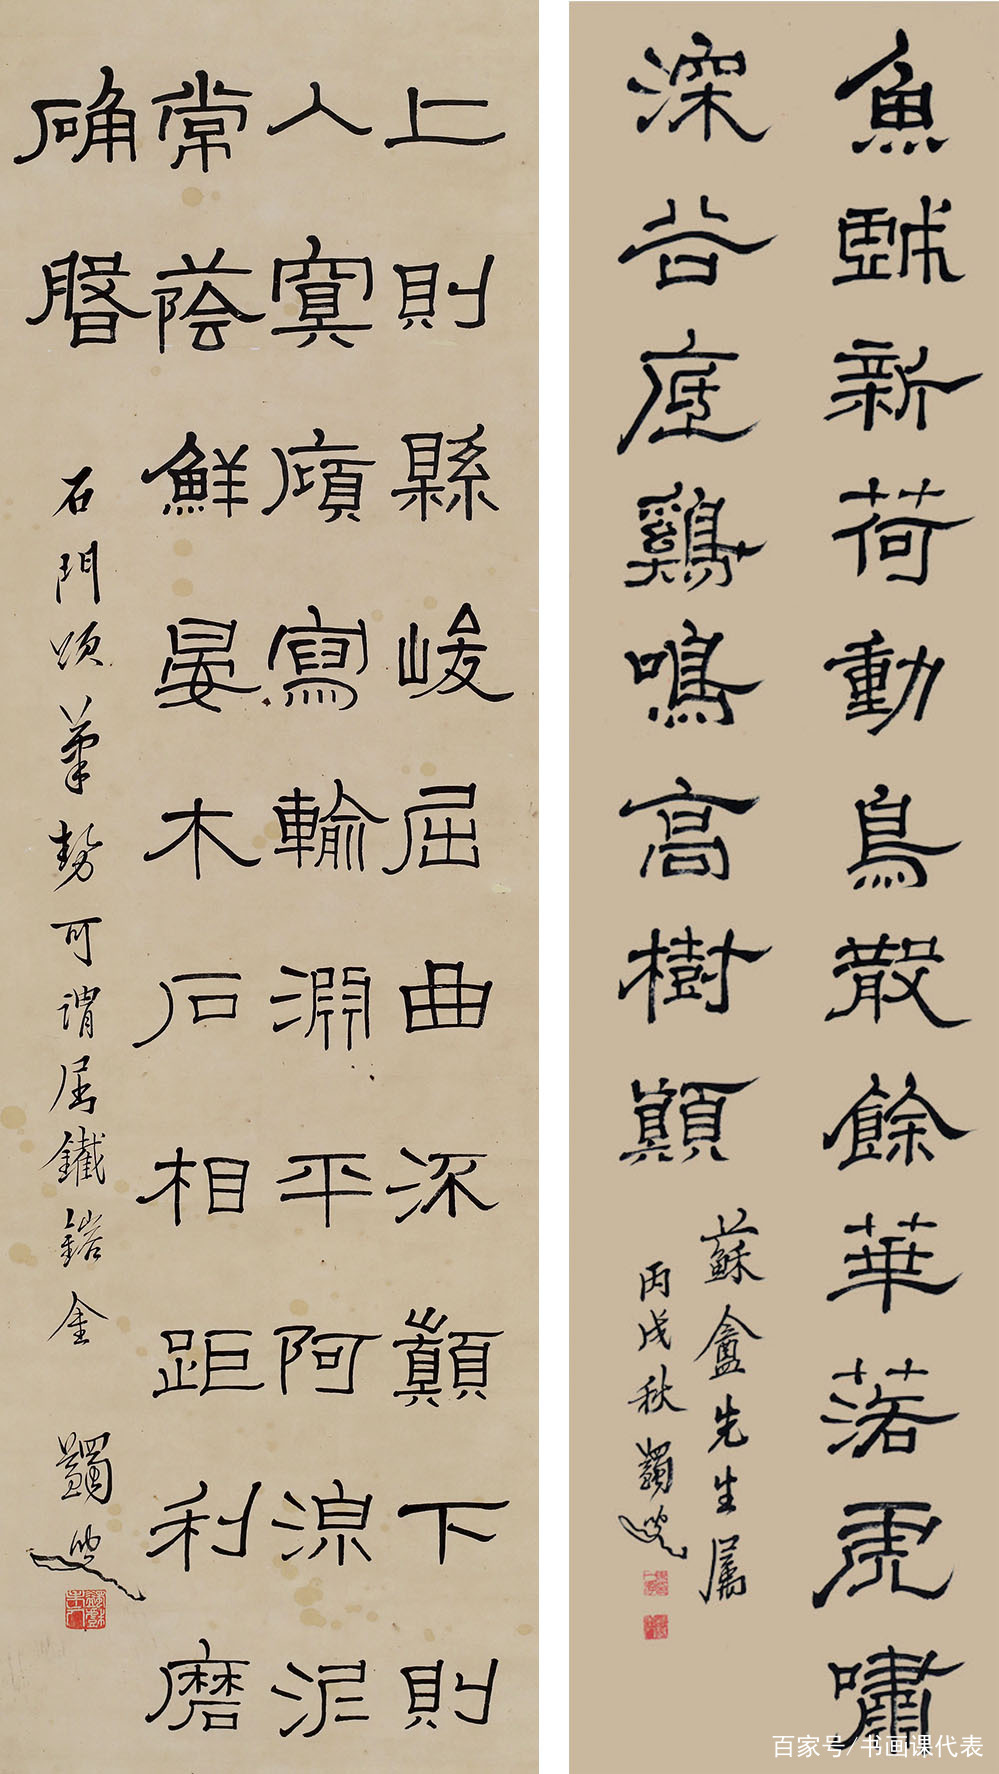 魚戲新荷動鳥散餘華落虎嘯
深谷底鷄鳴高樹巔
蘇盦先生屬
丙戌秋蠲叟
上則縣峻屈曲流巔下則
入冥廎寫輸淵平阿湶泥
常蔭鮮晏木石相距利磨
确
石門頌筆勢可謂屈鐵錯金 蠲叟
百家号/书画课代表